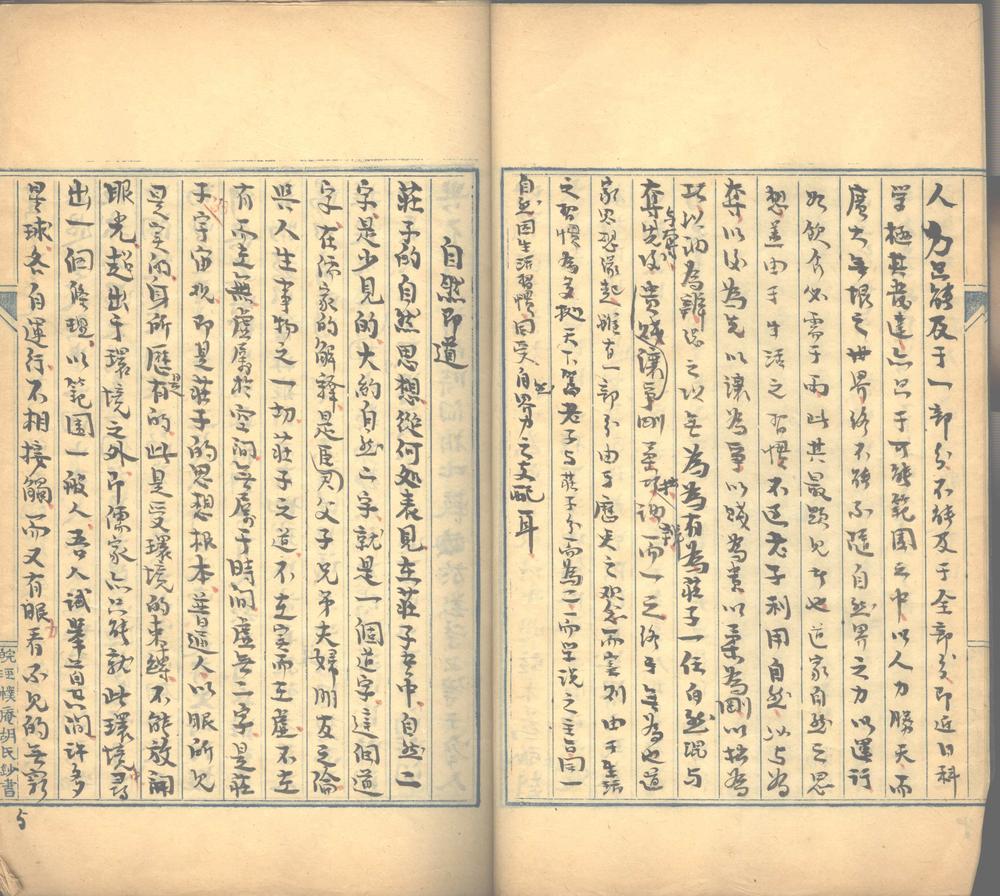 人力只能及于一部分不能及于全部分即近日科
学極其發達亦只于可能範圍之中以人力勝天而
廣大無垠之世界終不能不隨自然界之力以運行
如飲食必需于雨此其最顯見者也道家自然之思
想蓋由于生活之習慣不過老子利用自然以与為
奪以後為先以讓為爭以賤為貴以柔為剛以拙為
巧以訥為辯總之以無為為有為莊子一任自然視与
奪先後貴賤讓爭剛柔巧拙訥辯而一之終于無為也道
家思想緣起雖有一部分由于歷史之观念而
之習慣為多
自然因生活習慣因受自然界力之支配耳
自然即道
莊子的自然思想從何処表見在莊子書中自然二
字是少見的大約自然二字就是一個道字這個道
字在儒家的解釋是君臣父子兄弟夫婦朋友之倫
與人生事物之一切莊子之道不在實而在虛不在
有而在無虛屬於空间無屬于時间虛無二字是莊
子宇宙观即是莊子的思想根本普通人以眼所見
是空间身所歷的是時间此是受環境的束縛不能放開
眼光超出于環境之外即儒家亦只能就此環境尋
出一個條理以範圍一般人吾人試舉首只問許多
星球各自運行不相接觸而又有眼看不見的無窮
皖 樸庵胡氏鈔書
5